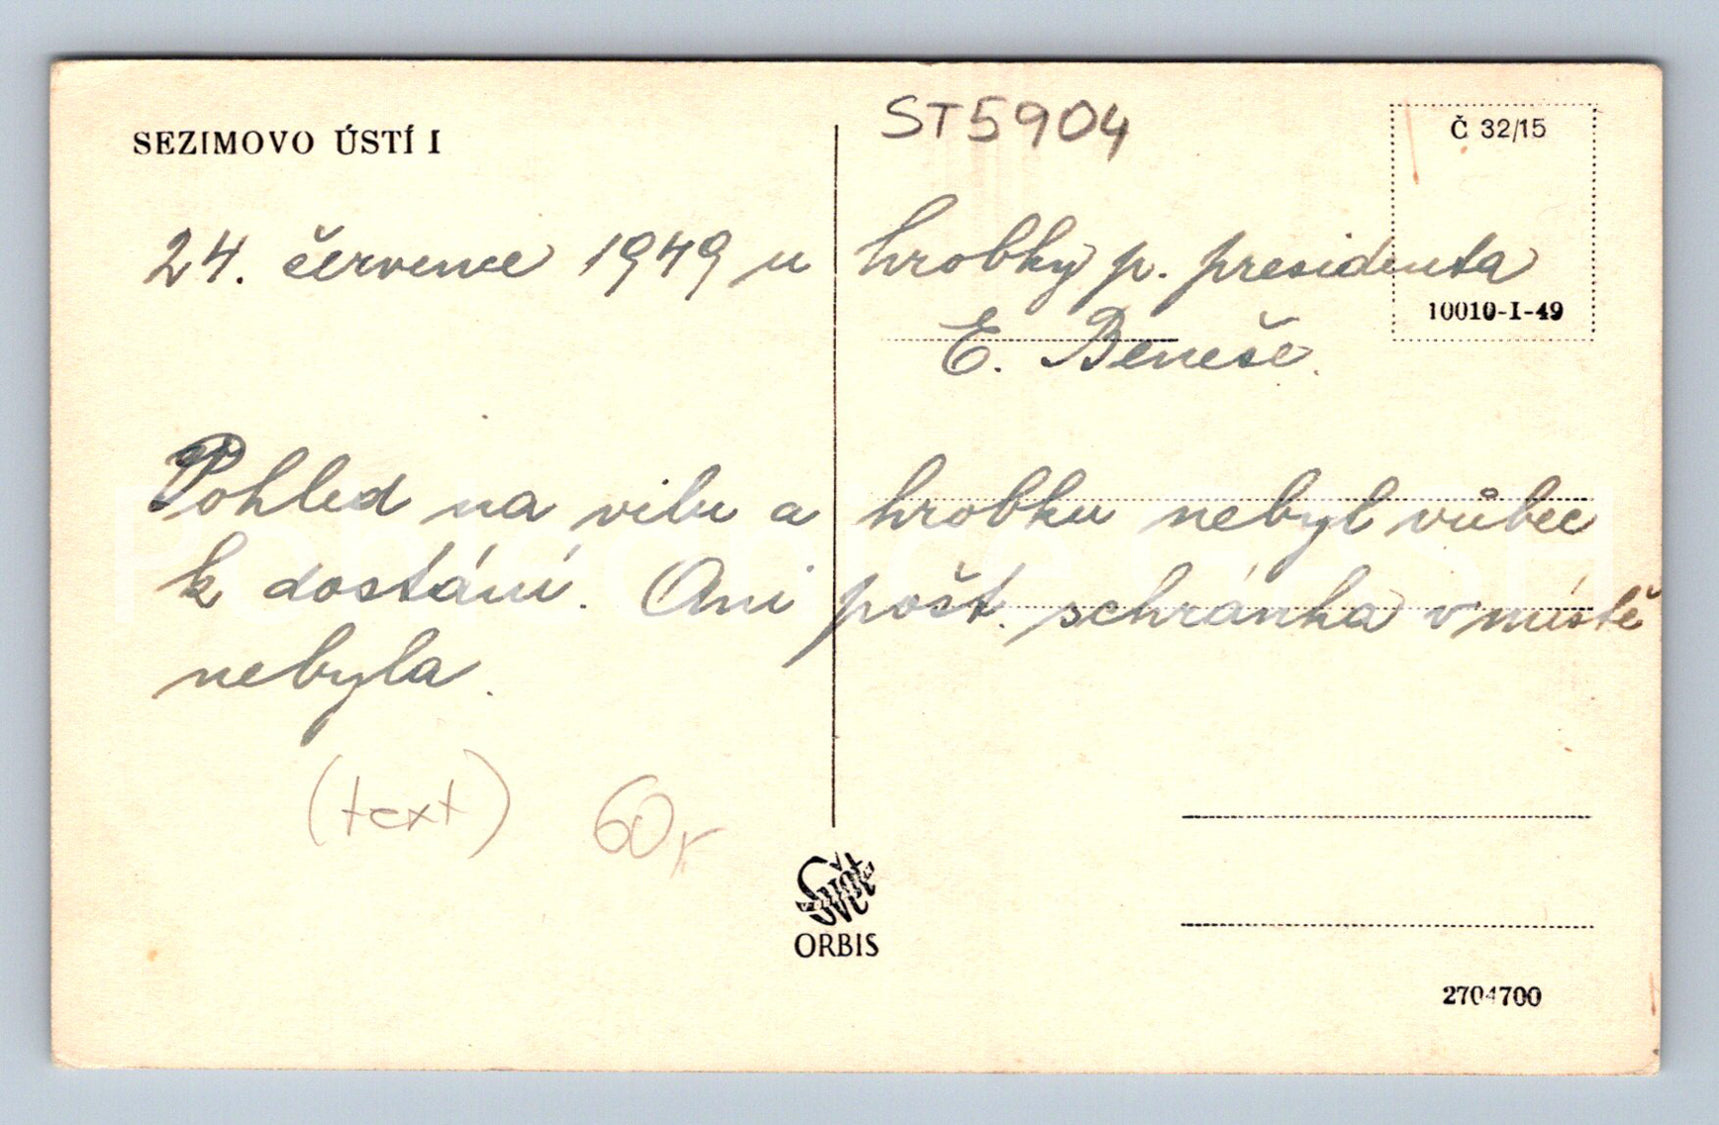 SEZIMOVO ÚSTÍ I
ST5904
Č 32/15
24. července 1949 u hrobky p. presidenta
10010-I-49
E. Beneše.
Pohled na vilu a hrobku nebyl vůbec
k dostání. Ani pošt. schránka v místě
nebyla.
(text) 60,-
Svět
ORBIS
2704700